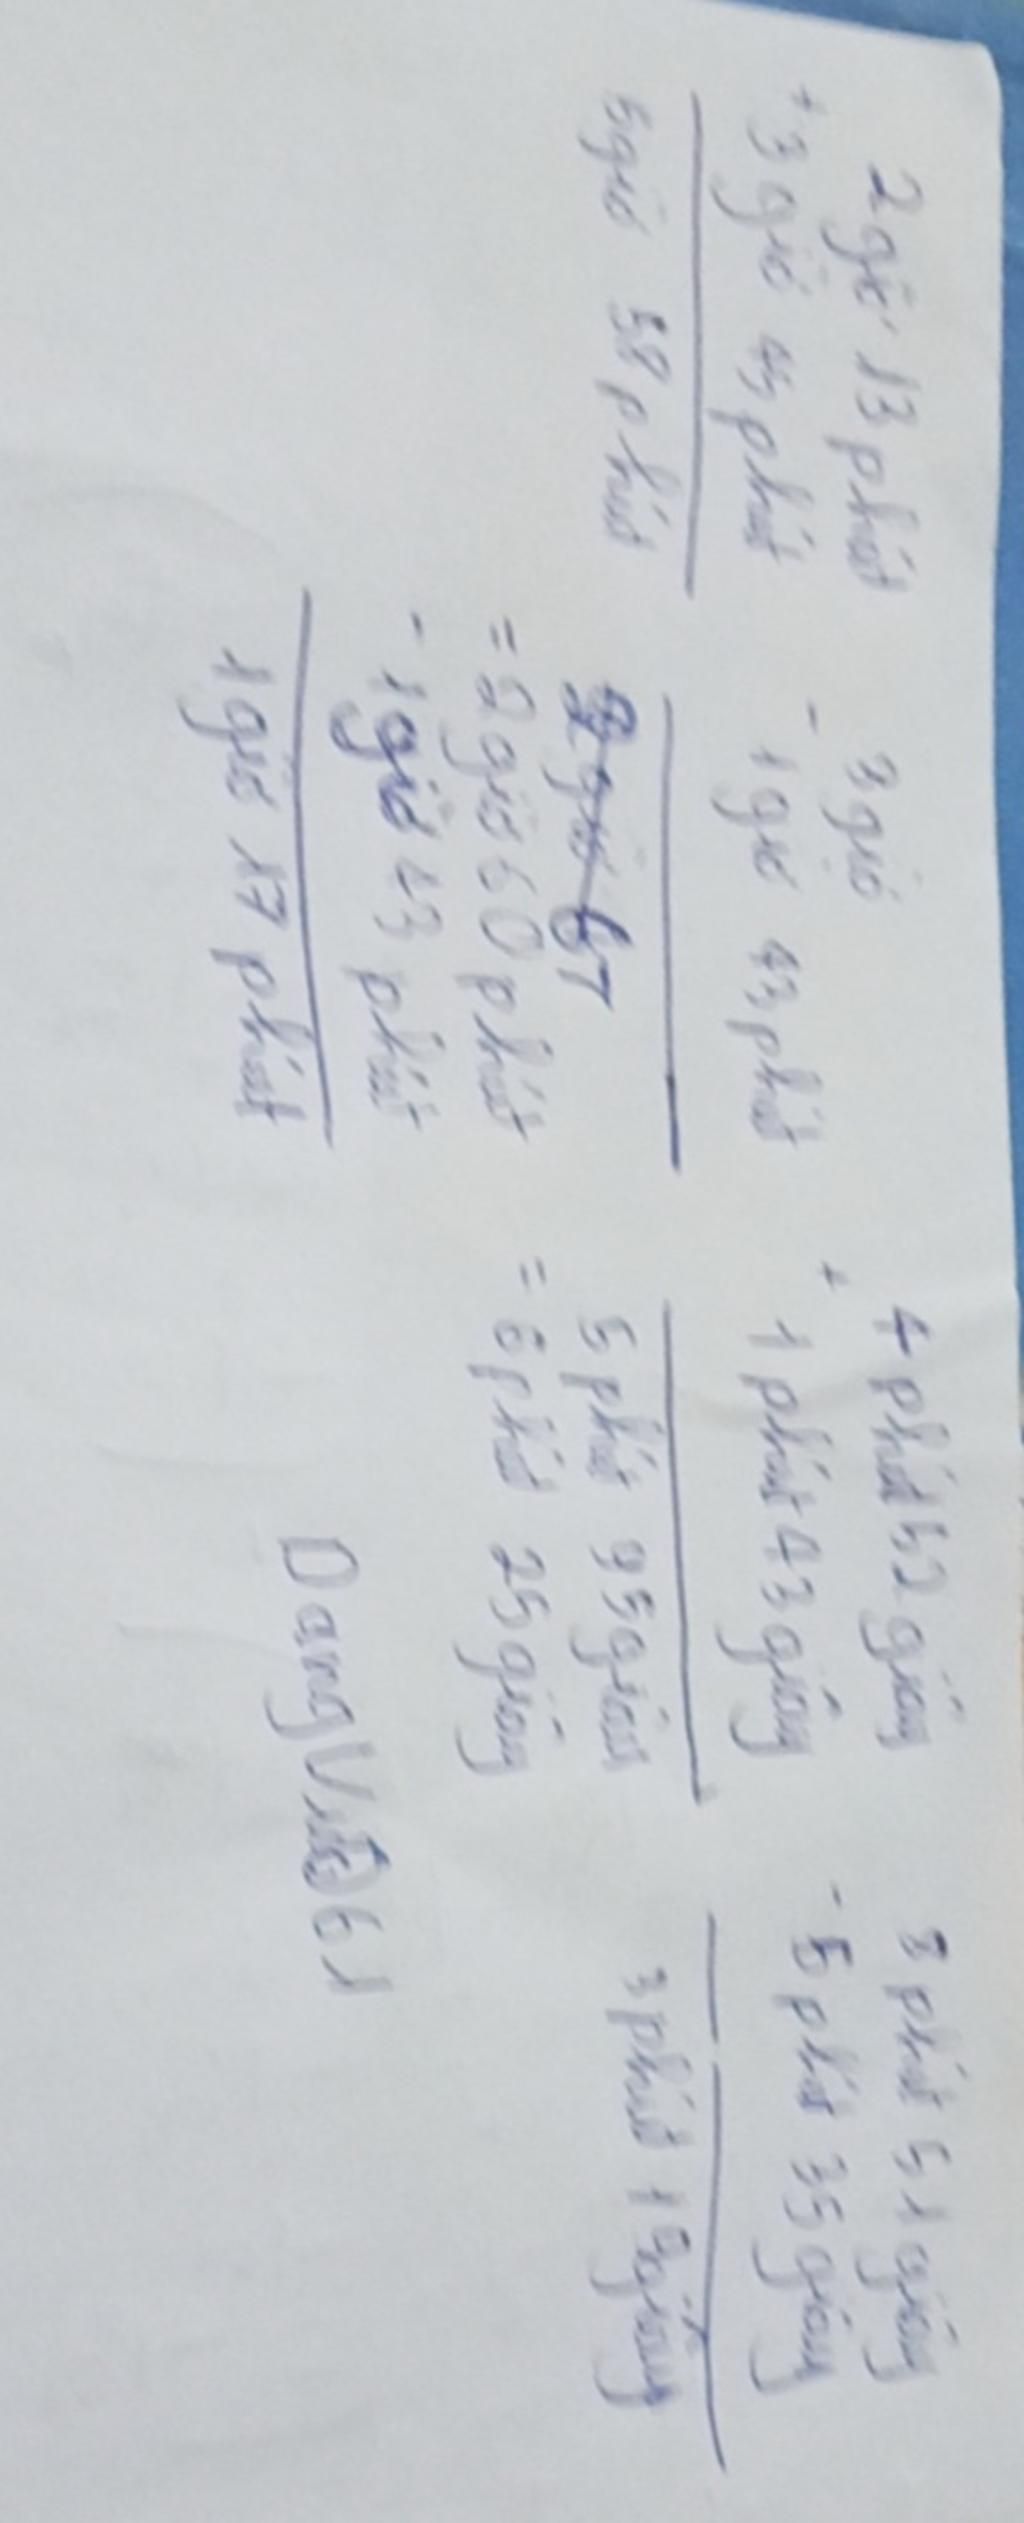 2 giờ 13 phút
+ 3 giờ 45 phút
5 giờ 58 phút
3 giờ
- 1 giờ 43 phút
= 2 giờ 60 phút
- 1 giờ 43 phút
1 giờ 17 phút
4 phút 52 giây
+ 1 phút 43 giây
5 phút 95 giây
= 6 phút 25 giây
phút 51 giây
- 5 phút 35 giây
3 phút giây
Dang Việt 61